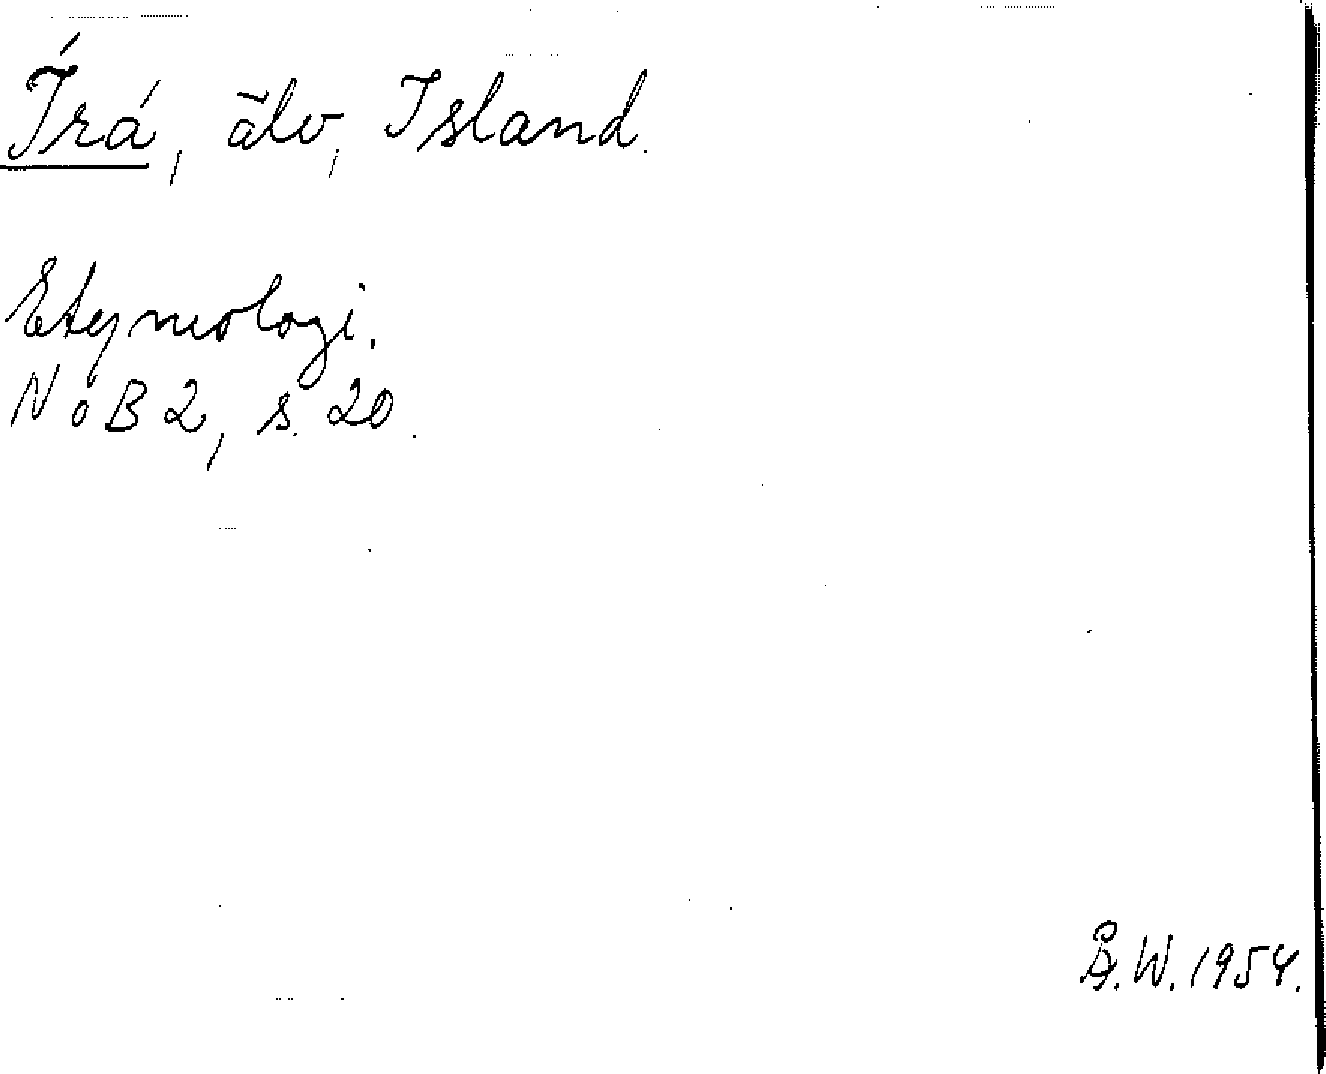 Írá, älv, Island.
Etymologi.
NoB 2, s. 20.
Å.W. 1954.